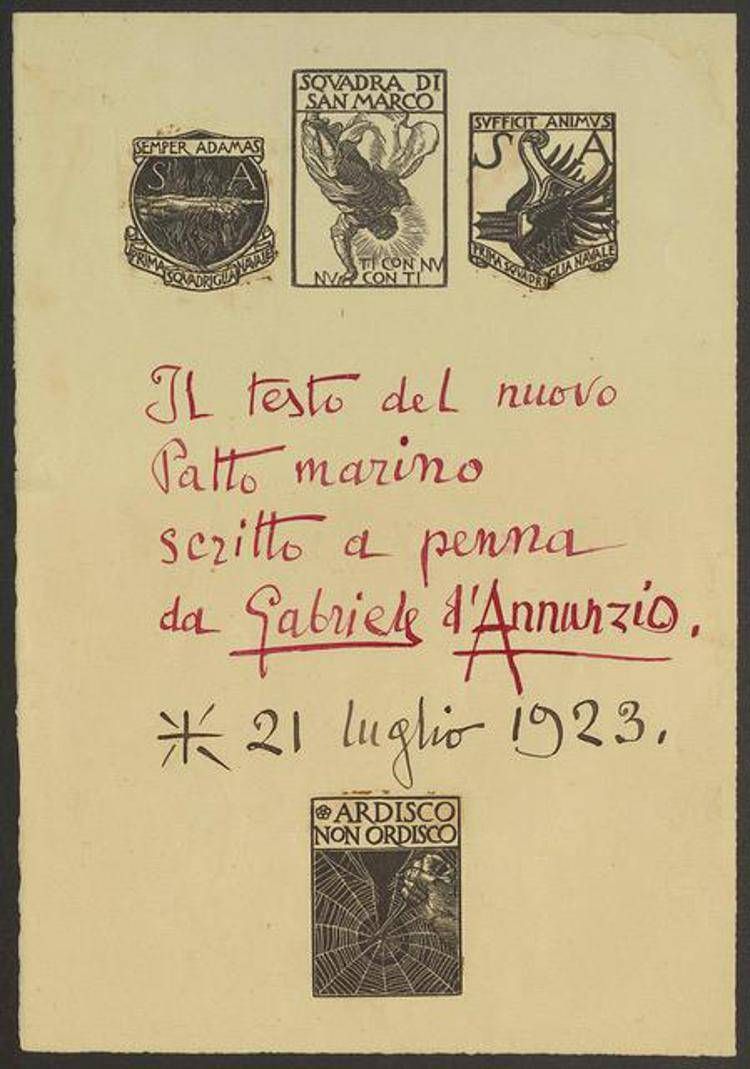 SQVADRA DI
SAN MARCO
TI CON NV
NV CON TI
SEMPER ADAMAS
S A
PRIMA SQUADRIGLIA NAVALE
SVFFICIT ANIMVS
S A
PRIMA SQVADRIGLIA NAVALE
Il testo del nuovo
Patto marino
scritto a penna
da Gabriele d'Annunzio.
* 21 luglio 1923.
ARDISCO
NON ORDISCO